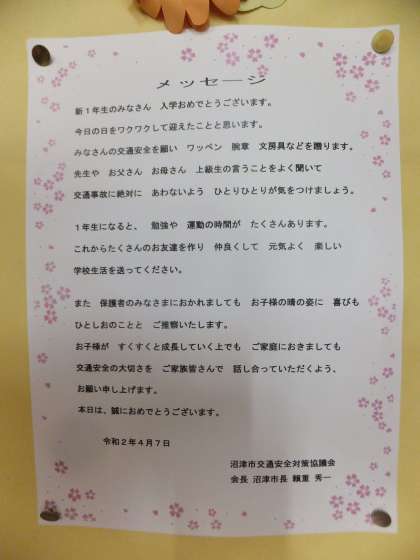 メッセージ
新１年生のみなさん　入学おめでとうございます。
今日の日をワクワクして迎えたことと思います。
みなさんの交通安全を願い　ワッペン　腕章　文房具などを贈ります。
先生や　お父さん　お母さん　上級生の言うことをよく聞いて
交通事故に絶対に　あわないよう　ひとりひとりが気をつけましょう。
１年生になると、　勉強や　運動の時間が　たくさんあります。
これからたくさんのお友達を作り　仲良くして　元気よく　楽しい
学校生活を送ってください。
また　保護者のみなさまにおかれましても　お子様の晴の姿に　喜びも
ひとしおのことと　ご推察いたします。
お子様が　すくすくと成長していく上でも　ご家庭におきましても
交通安全の大切さを　ご家族皆さんで　話し合っていただくよう、
お願い申し上げます。
本日は、誠におめでとうございます。
令和２年４月７日
沼津市交通安全対策協議会
会長　沼津市長　賴重　秀一